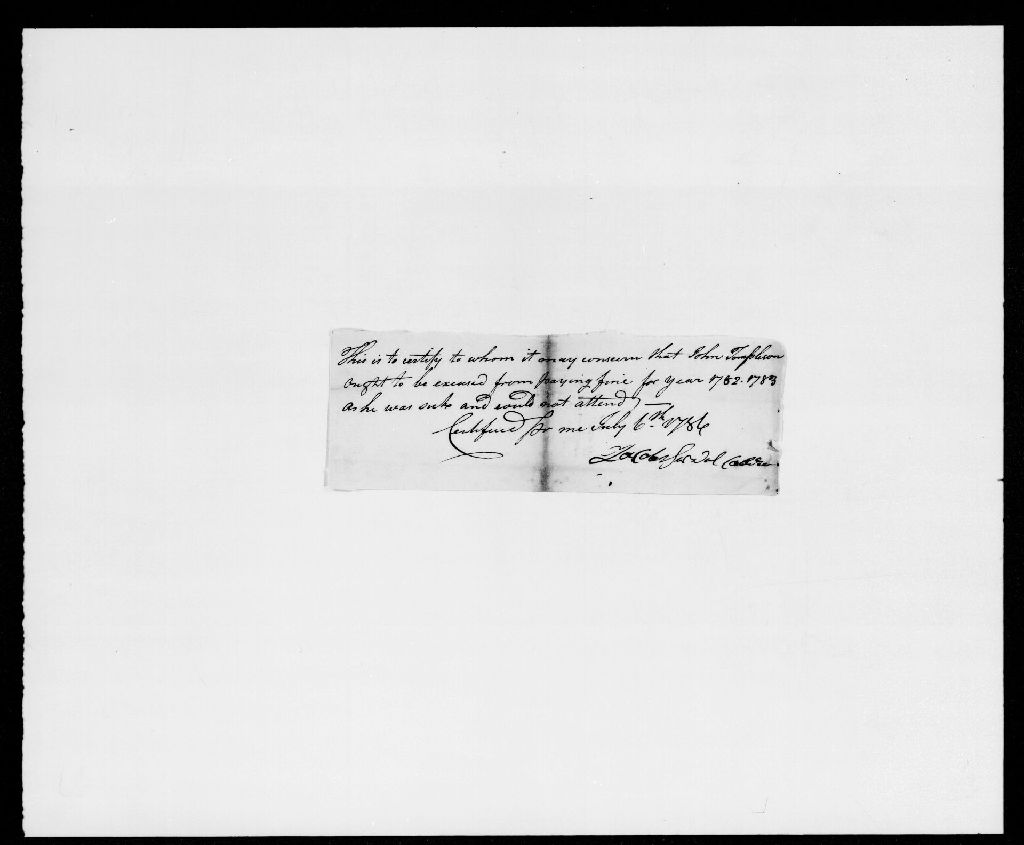 This is to certify to whom it may concern that John
ought to be excused from paying fine for year 1782 1783
as he was sick and could not attend
Certified pr me July 6th 1786
Jacob